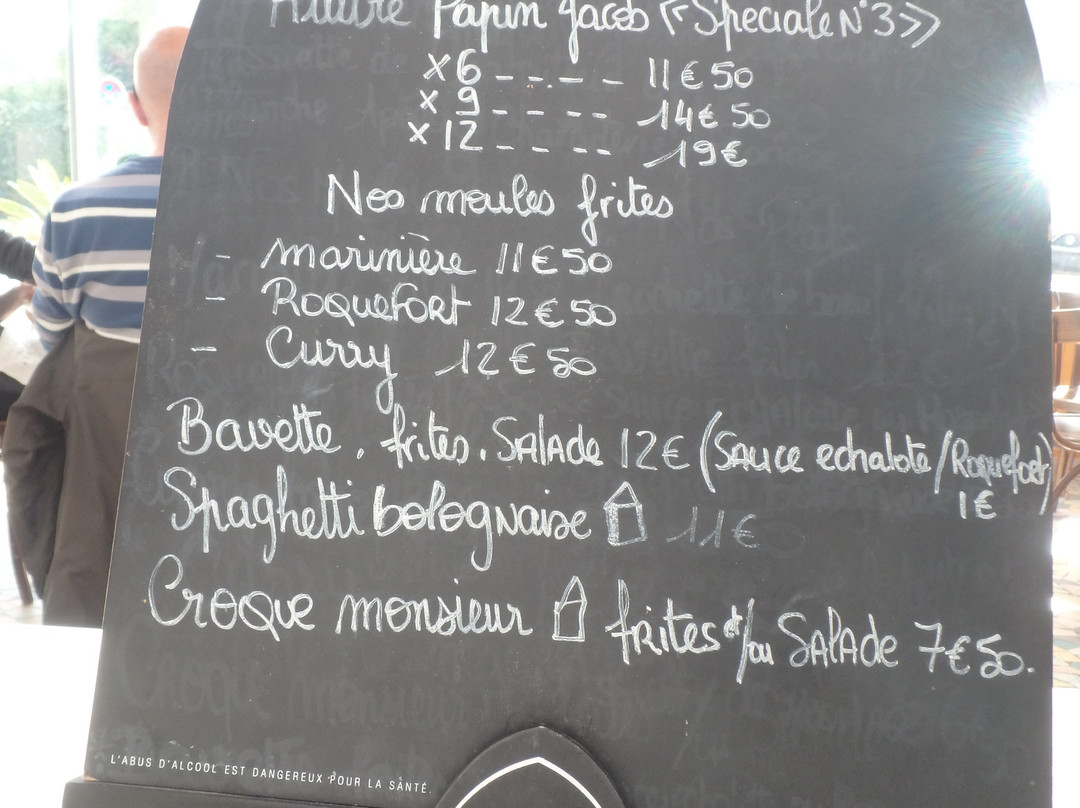 Papin Jacob « Speciale N°3 »
x6 - - - - - 11€50
x 9 - - - - 14€50
x 12 - - - - 19€
Nos moules frites
- marinière 11€50
- Roquefort 12€50
- Curry 12€50
Bavette . frites . Salade 12€ (Sauce echalote / Roquefort)
1€
Spaghetti bolognaise 11€
Croque monsieur frites et/ou Salade 7€50.
L'ABUS D'ALCOOL EST DANGEREUX POUR LA SANTÉ.